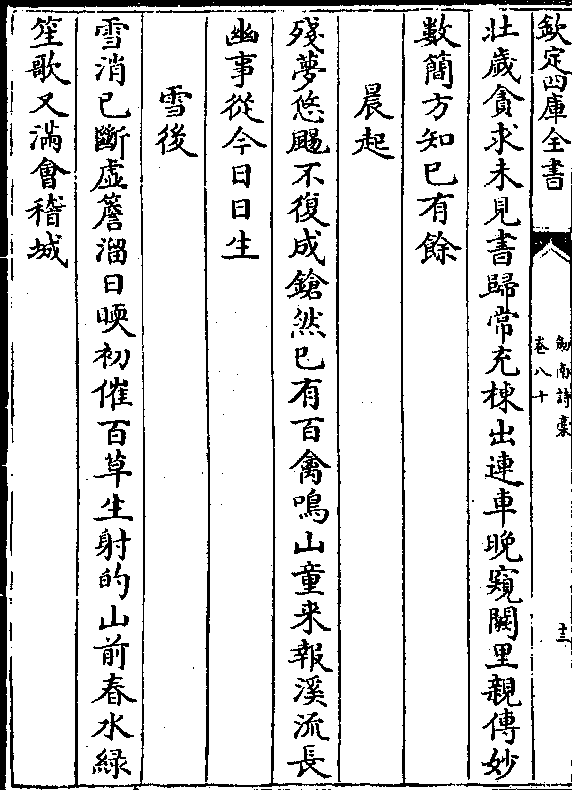 欽定四庫全書
劒南詩稾
卷八十
十三
壯歲貪求未見書歸常充棟出連車晚窺闕里親傳妙
數簡方知已有餘
晨起
殘夢悠颺不復成鎗然已有百禽鳴山童来報溪流長
幽事從今日日生
雪後
雪消已斷虚簷溜日暎初催百草生射的山前春水緑
笙歌又滿會稽城